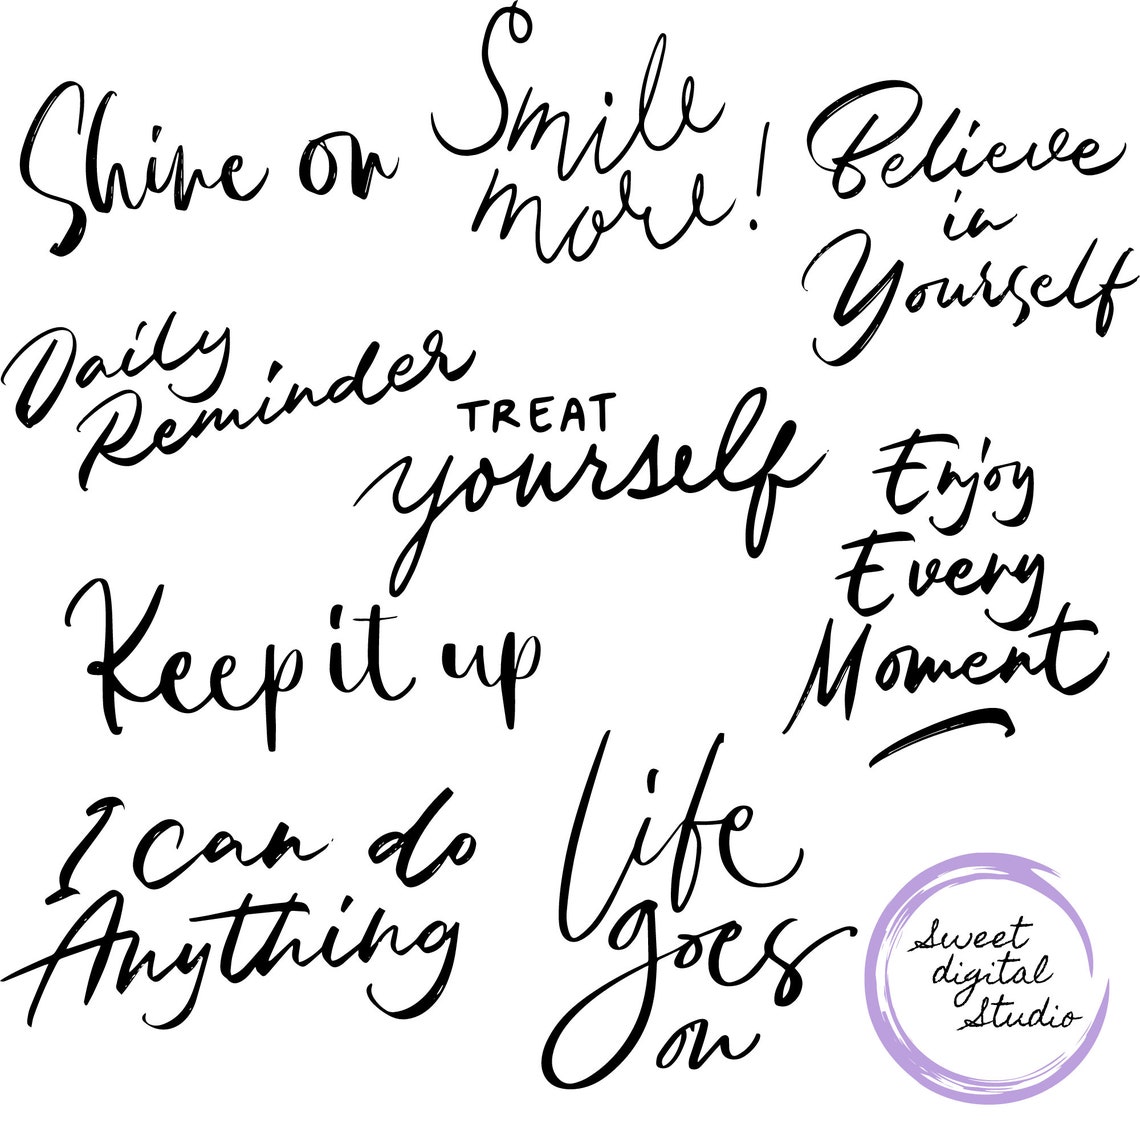 Shine on
Smile
more!
Believe
in
Yourself
Daily
Reminder
TREAT
yourself
Enjoy
Every
Moment
Keep it up
I can do
Anything
Life
goes
on
Sweet
digital
Studio